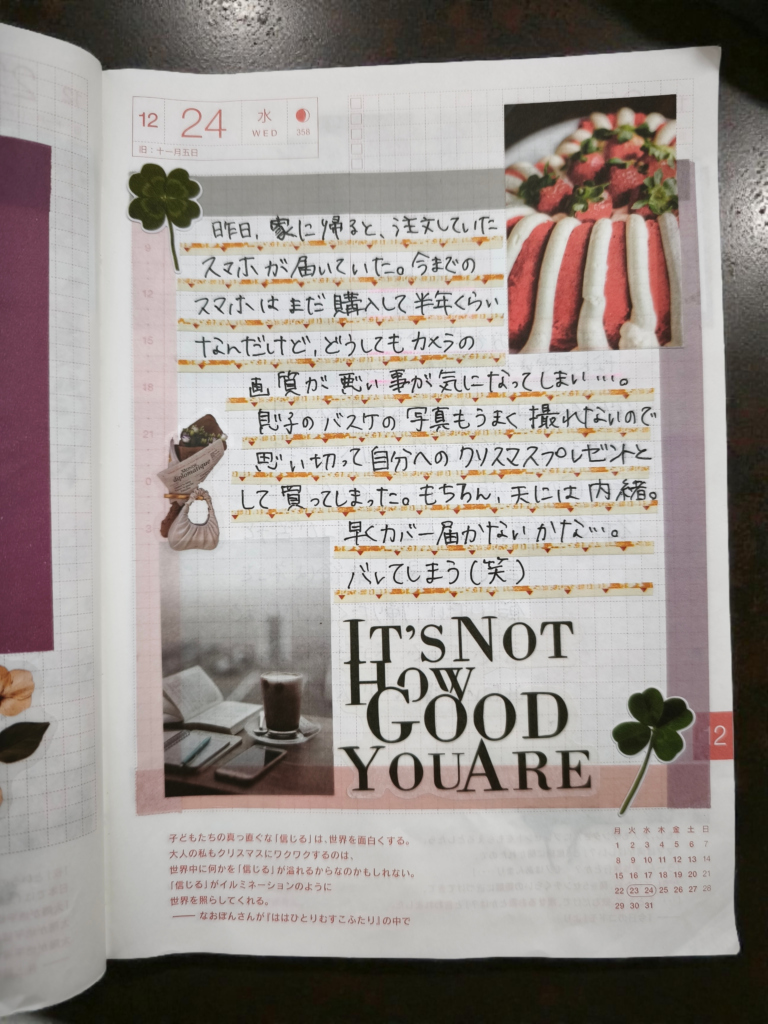 12 24 水 WED 358
旧:十一月五日
昨日、家に帰ると、注文していた
スマホが届いていた。今までの
スマホはまだ購入して半年くらい
なんだけど、どうしてもカメラの
画質が悪い事が気になってしまい…。
息子のバスケの写真もうまく撮れないので
思い切って自分へのクリスマスプレゼントと
して買ってしまった。もちろん、夫には内緒。
早くカバー届かないかな…。
バレてしまう(笑)
IT'S NOT
HOW
GOOD
YOU ARE
12
子どもたちの真っ直ぐな「信じる」は、世界を面白くする。
大人の私もクリスマスにワクワクするのは、
世界中に何かを「信じる」が溢れるからなのかもしれない。
「信じる」がイルミネーションのように
世界を照らしてくれる。
―― なおぽんさんが『ははひとりむすこふたり』の中で
月 火 水 木 金 土 日
1 2 3 4 5 6 7
8 9 10 11 12 13 14
15 16 17 18 19 20 21
22 23 24 25 26 27 28
29 30 31